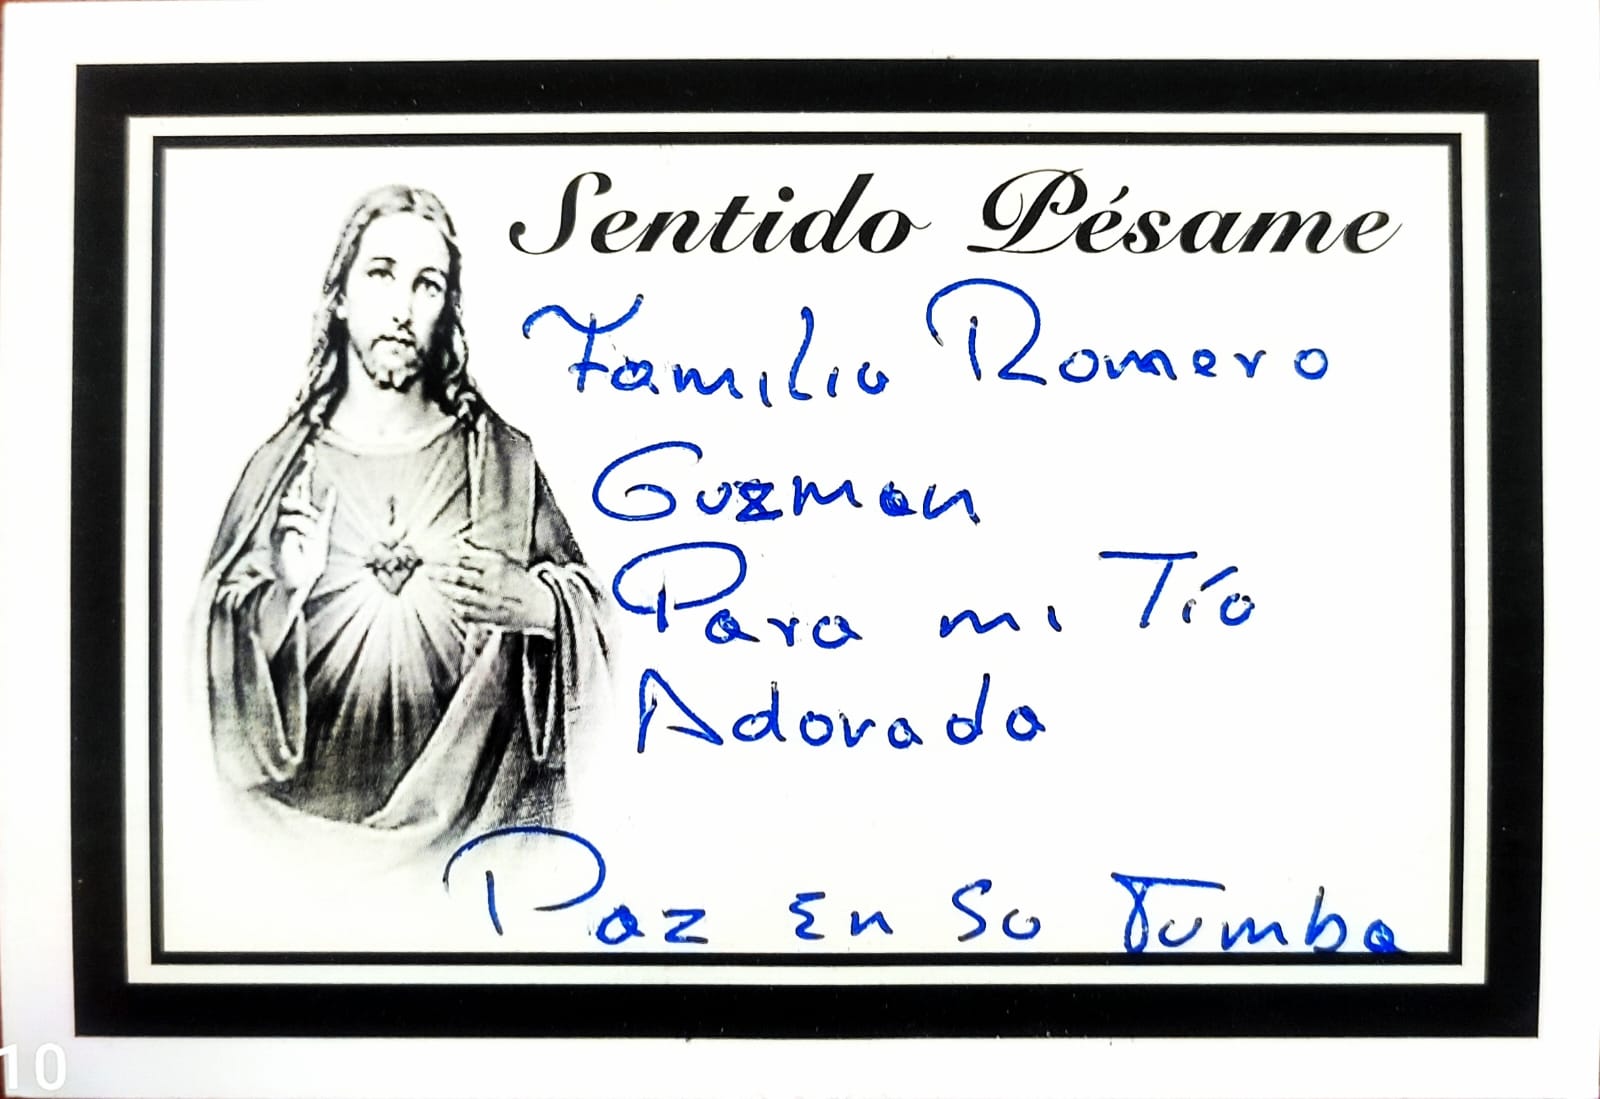 Sentido Pésame
Familia Romero
Guzman
Para mi Tío
Adorado
Paz En Su Tumba
10